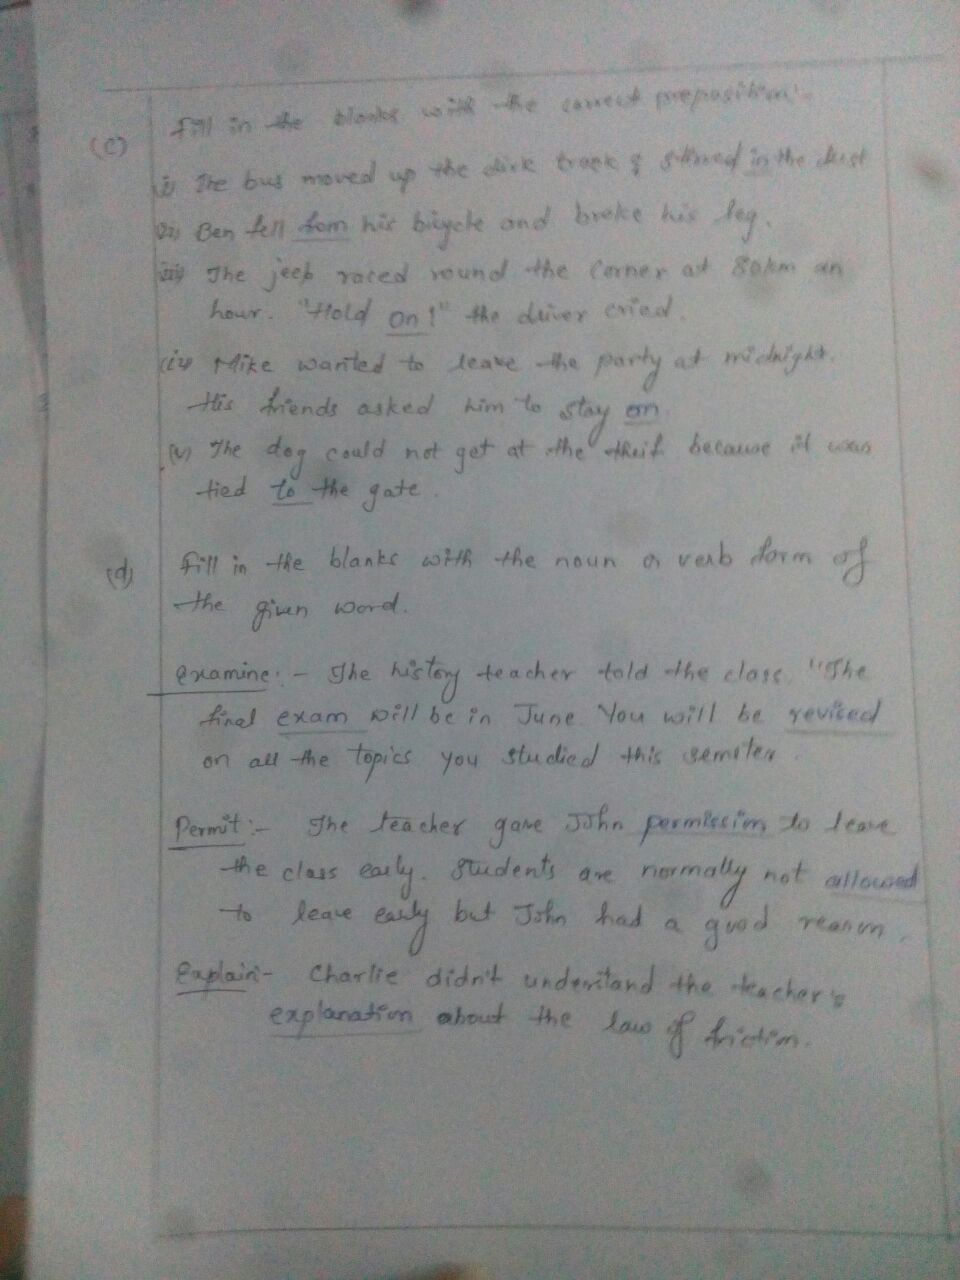 (c) Fill in the blanks with the correct preposition:-
i) The bus moved up the dirk track & stirred in the dust
ii) Ben fell from his bicycle and broke his leg.
iii) The jeep raced round the corner at 80km an
hour. "Hold on!" the driver cried.
(iv) Mike wanted to leave the party at midnight.
His friends asked him to stay on.
(v) The dog could not get at the theif because it was
tied to the gate.
(d) Fill in the blanks with the noun or verb form of
the given word.
examine:- The history teacher told the class, "The
final exam will be in June You will be reviced
on all the topics you studied this semster.
Permit:- The teacher gave John permission to leave
the class early. Students are normally not allowed
to leave early but John had a good reason.
Explain- Charlie didn't understand the teacher's
explanation about the law of friction.